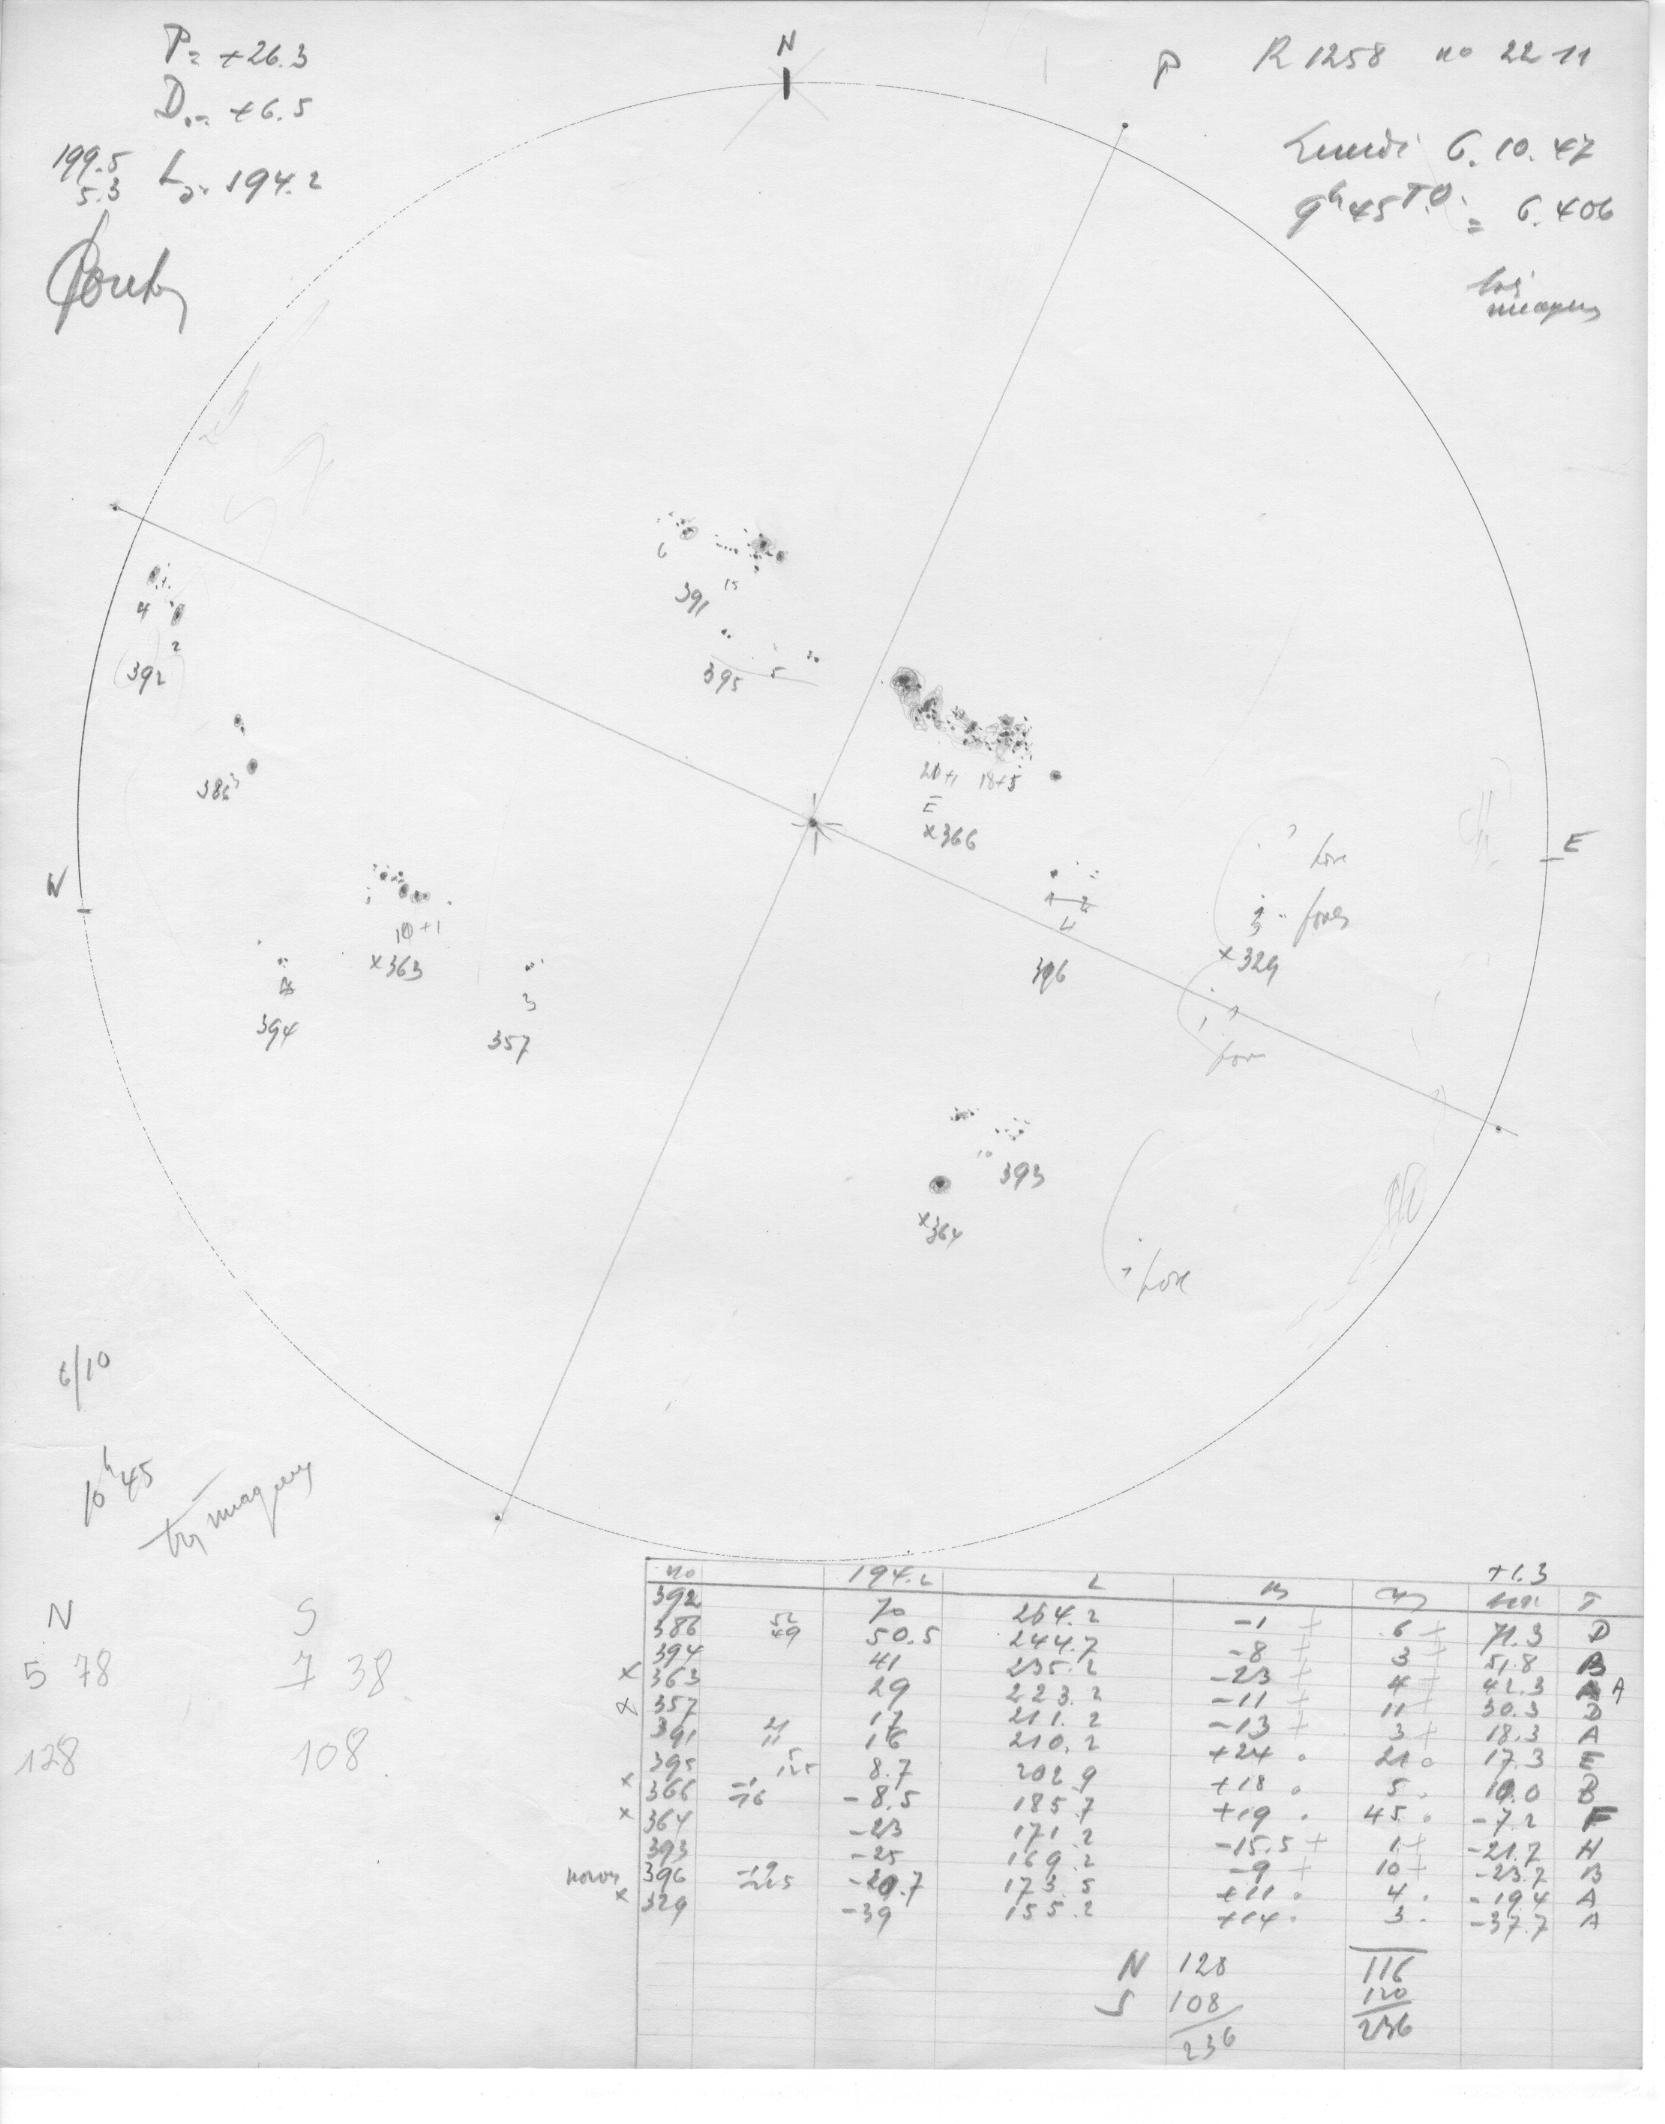 P= +26.3
D.= +6.5
199.5
5.3
L.= 194.2
N
P
R 1258 no 22 11
Lundi 6.10.47
9h45 T.O. = 6.406
6
15
391
395 5
4
2
392
386 3
20+1 18+5
E
x366
E
W
10+1
x363
394
3
357
1 2
4
396
3
fore
x329
10
393
x364
6/10
10h45
N S
5 78 7 38
128 108
+1.3
no 194.2 L B T
392 70 264.2 -1 + 6 + 71.3 D
386 52 49 50.5 244.7 -8 + 3 + 51.8 B
394 41 235.2 -23 + 4 + 42.3 A
x 363 29 223.2 -11 + 11 + 30.3 D
x 357 17 211.2 -13 + 3 + 18.3 A
391 21 11 16 210.2 +24 . 21 . 17.3 E
395 5 12.5 8.7 202.9 +18 . 5 . 10.0 B
x 366 -1 -16 -8.5 185.7 +19 . 45 . -7.2 F
x 364 -23 171.2 -15.5 + 1 + -21.7 H
393 -25 169.2 -9 + 10 + -23.7 B
396 -20.7 173.5 +11 . 4 . -19.4 A
x 329 -39 155.2 +14 . 3 . -37.7 A
N 128 116
S 108 120
236 236